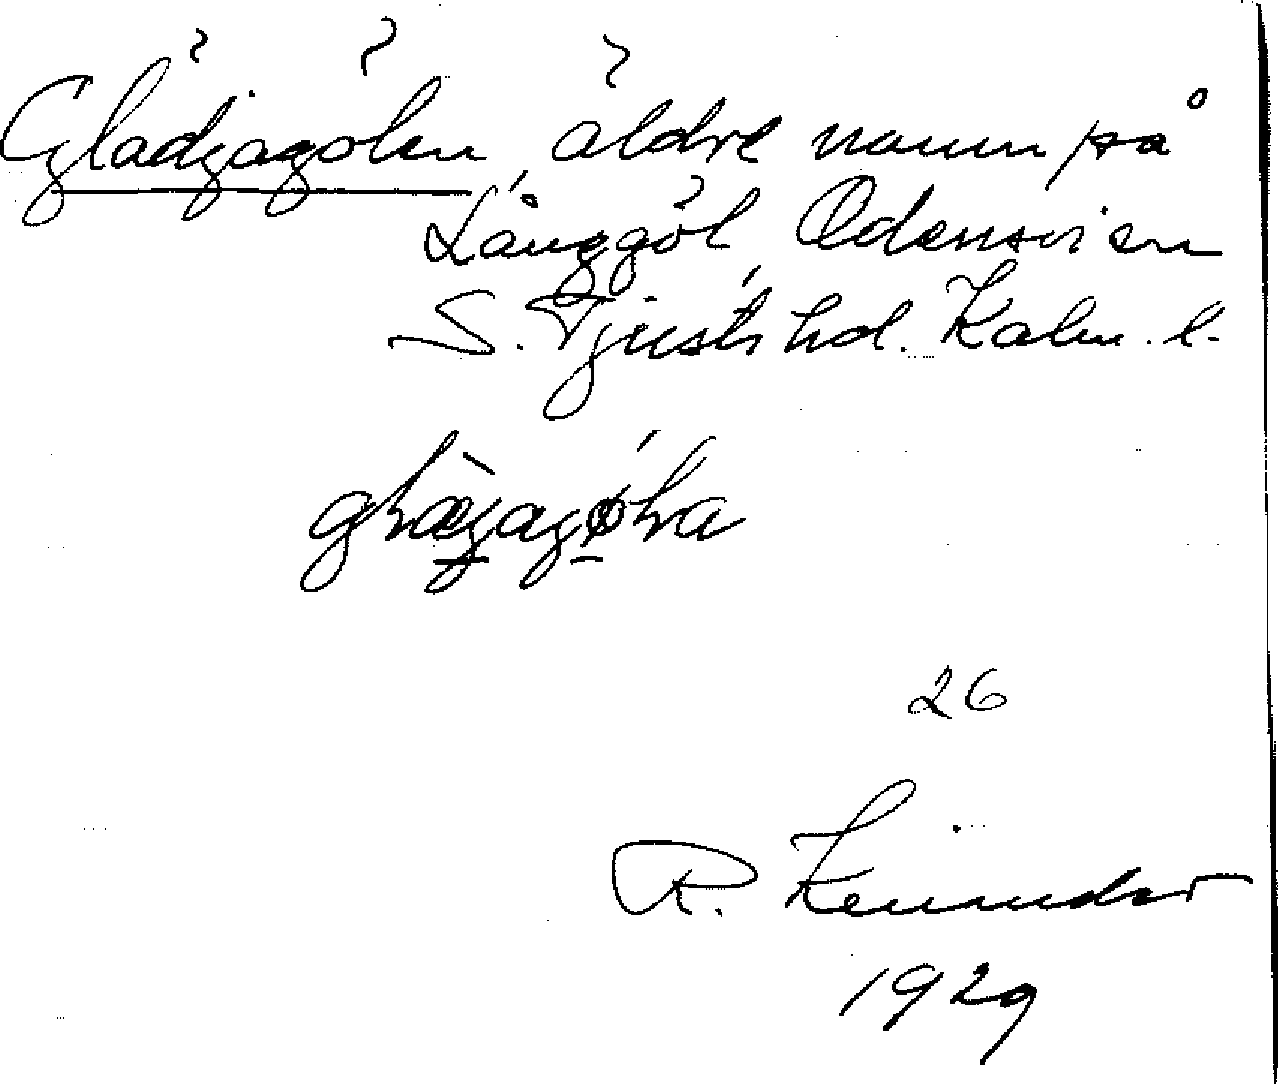 Glädjagölen, äldre namn på
Långgöl, Odensvi sn
S. Tjusts hd. Kalm. l.
26
R. Keninder
1929